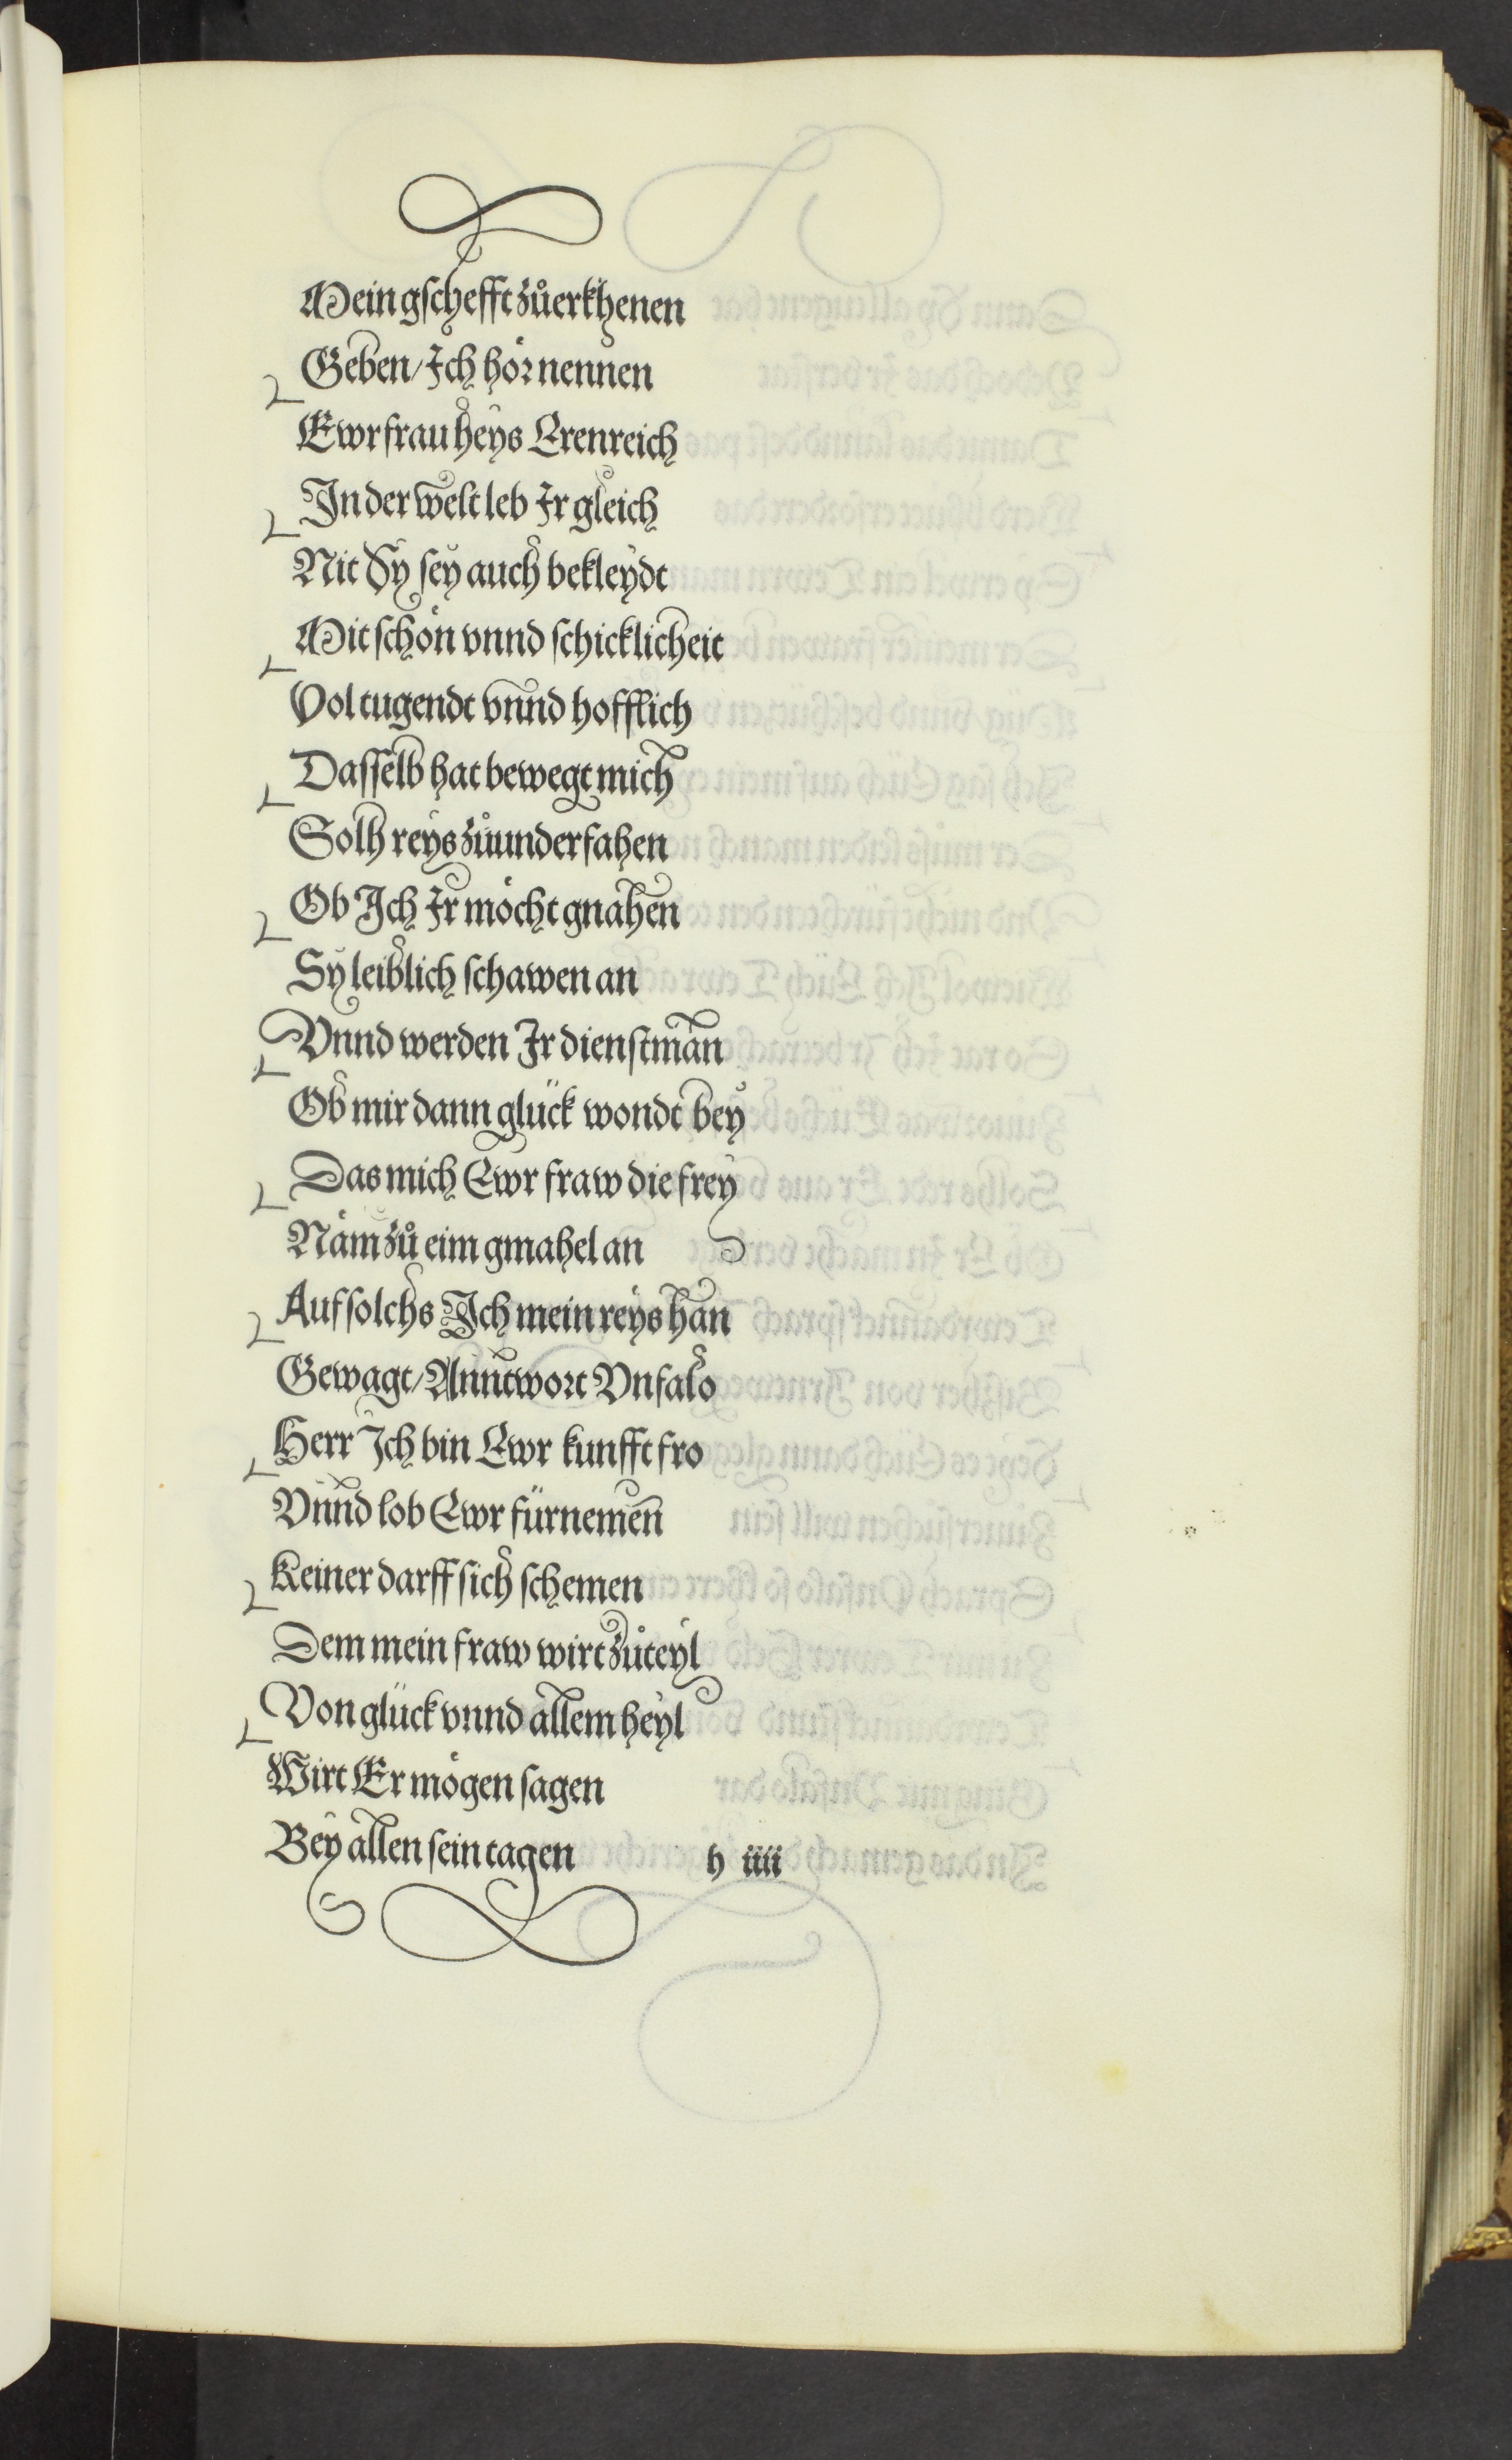 Mein gschefft zůerkhenen
Geben / Ich hör nennen
Ewr frau heys Erenreich
In der welt leb Ir gleich
Nit Sy sey auch bekleydt
Mit schön vnnd schicklicheit
Vol tugendt vnnd hofflich
Dasselb hat bewegt mich
Solh reys zůunderfahen
Ob Ich Ir möcht gnahen
Sy leiblich schawen an
Vnnd werden Ir dienstman
Ob mir dann glück wondt bey
Das mich Ewr fraw die frey
Näm zů eim gmahel an
Auf solchs Ich mein reys han
Gewagt / Anntwort Vnfalo
Herr Ich bin Ewr kunfft fro
Vnnd lob Ewr fürnemen
Keiner darff sich schemen
Dem mein fraw wirt zůteyl
Von glück vnnd allem heyl
Wirt Er mögen sagen
Bey allen sein tagen h iiii